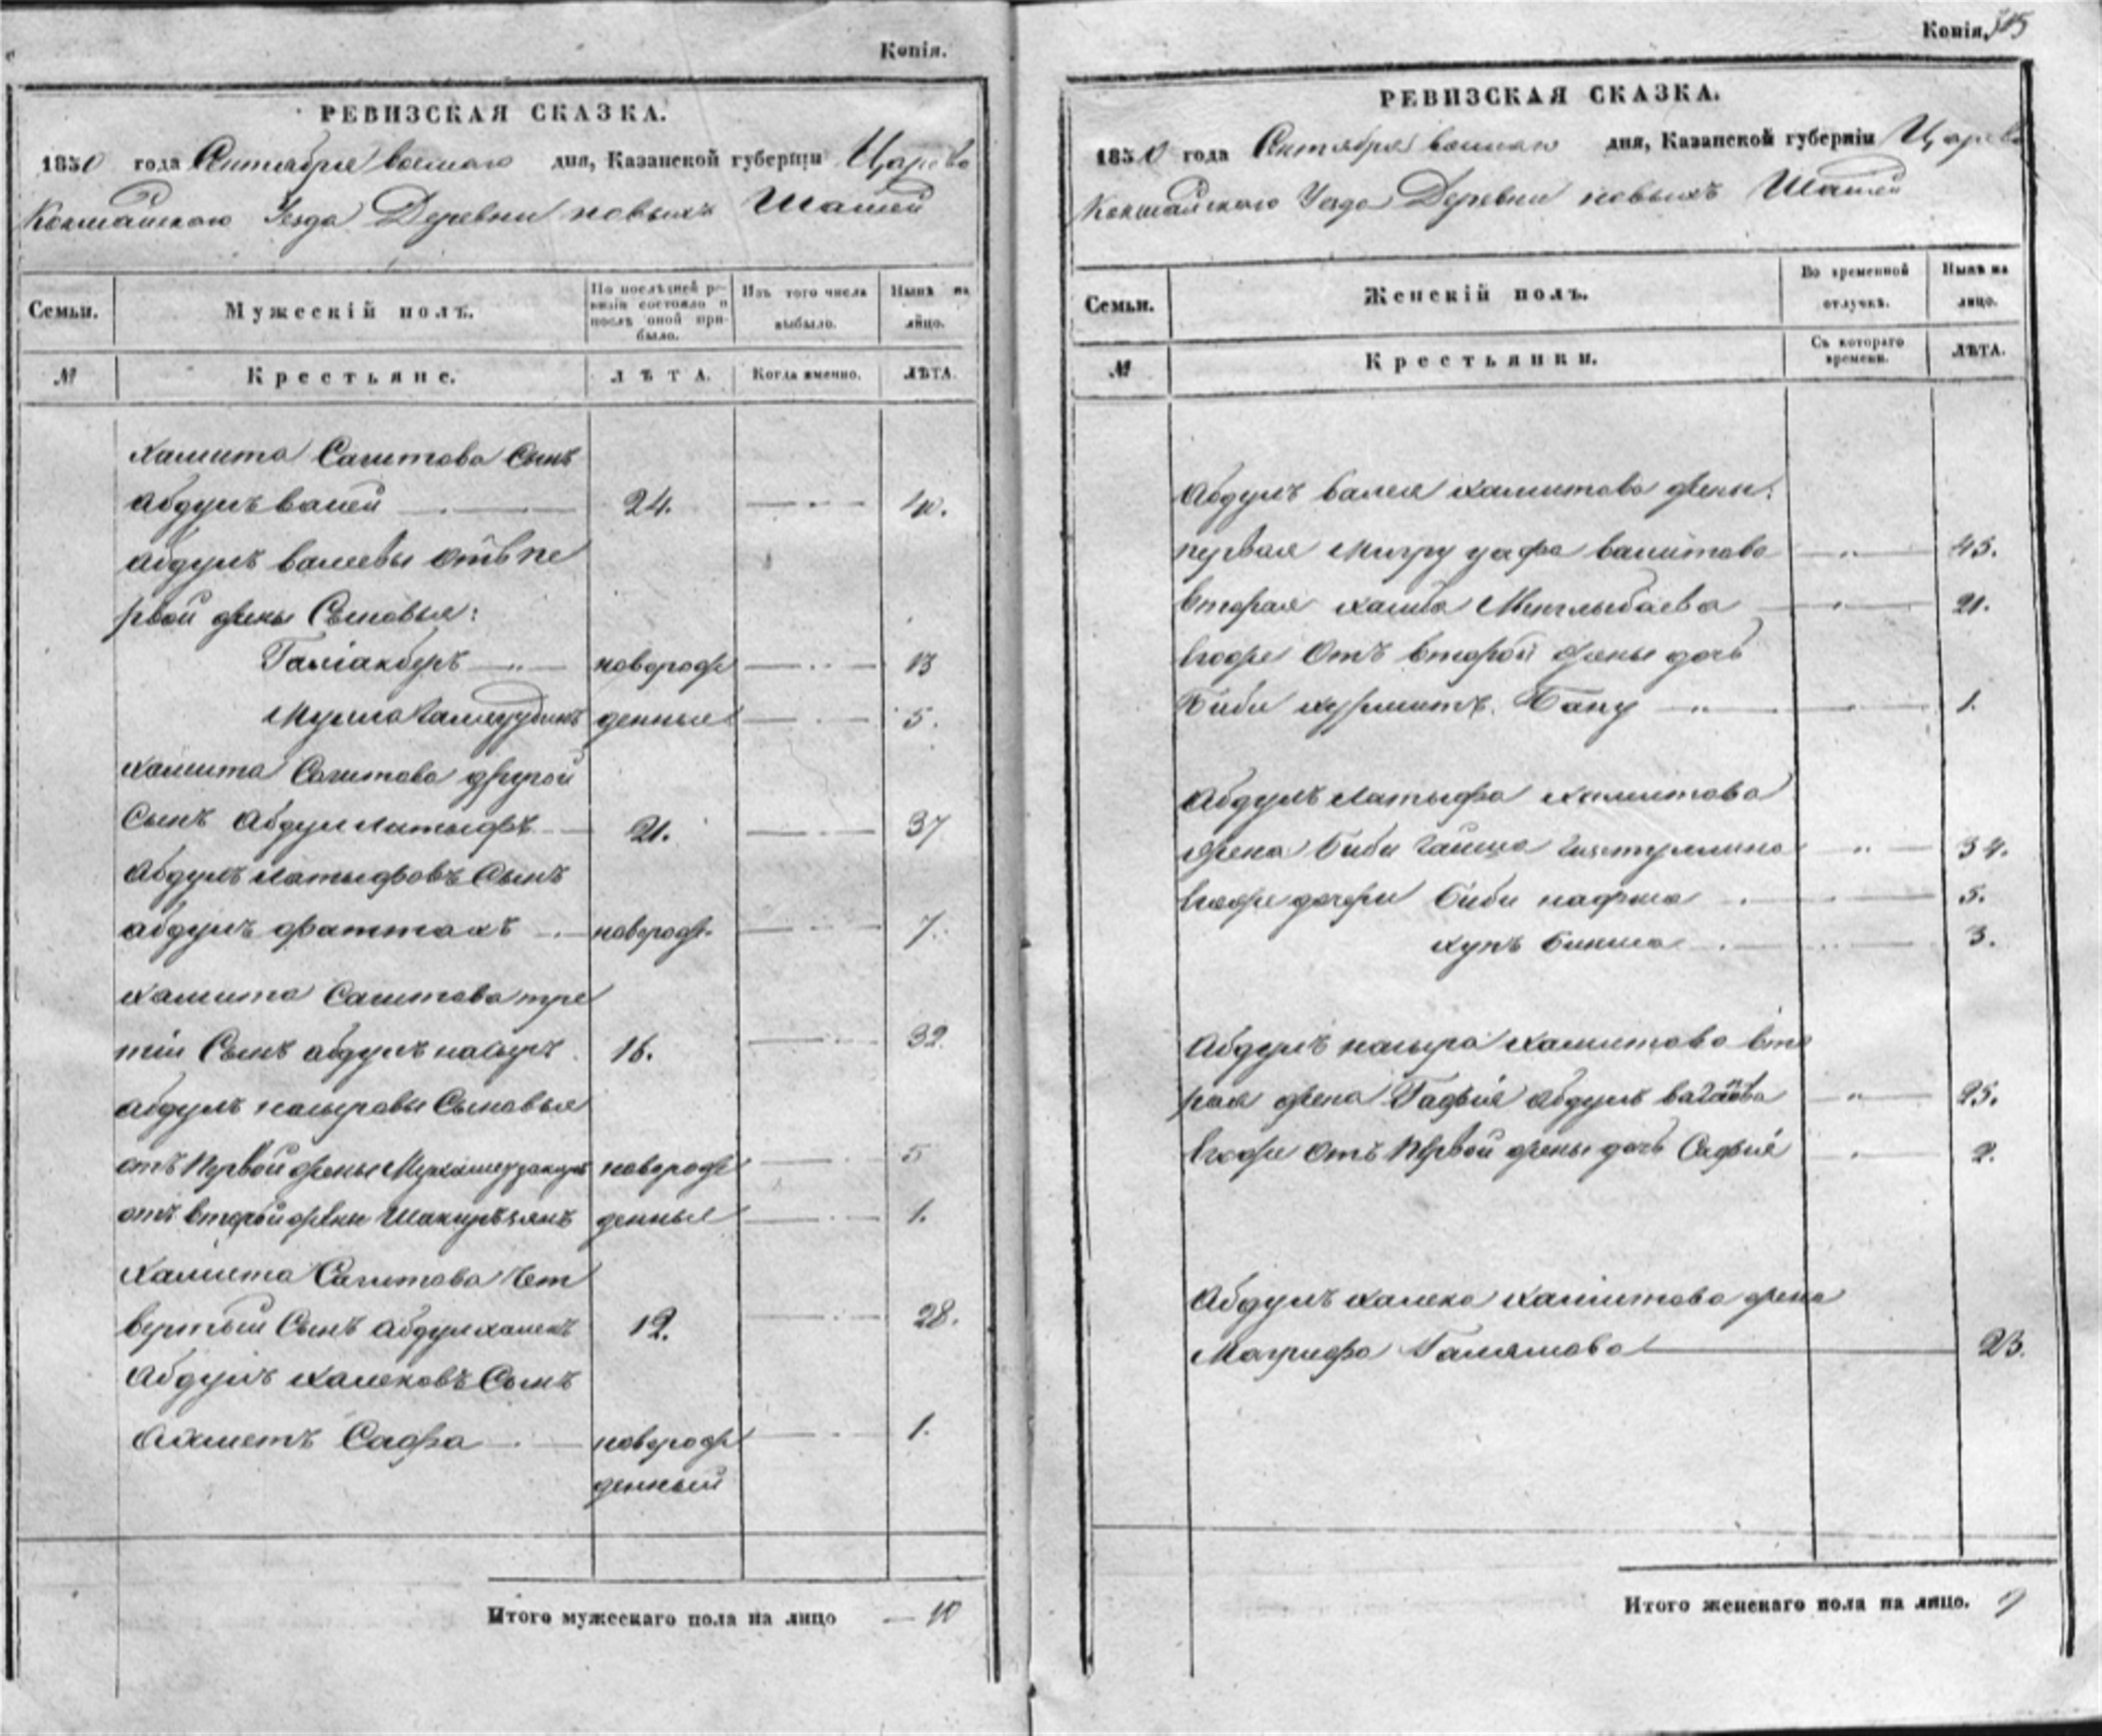 Копія.
РЕВИЗСКАЯ СКАЗКА.
1850 года Сентября восмаго дня, Казанской губерніи Царево
Кокшайскаго Уезда Деревни новыхъ Шашей
Семьи.
Мужескій полъ.
По послѣдней ре-
визіи состояло и
послѣ оной при-
было.
Изъ того числа
выбыло.
Нынѣ на
лицо.
№
Крестьяне.
ЛѢТА.
Когда именно.
ЛѢТА.
Хамита Сагитова Сынъ
Абдулъ валей 24. 40.
Абдулъ валеевы отъ пе
рвой жены Сыновья:
Галіакберъ новорож 13
Мулла денные 5.
Хамита Сагитова другой
Сынъ Абдул латыфъ 21. 37
Абдулъ латыфовъ Сынъ
абдулъ фаттахъ новорож. 7.
Хамита Сагитова тре
тіи Сынъ абдулъ насыръ 16. 32.
Абдулъ насыровы Сыновья
отъ Первой жены новорож 5
отъ второй жены Шакирьзянъ денные 1.
Хамита Сагитова Чет
вертый Сынъ Абдул халекъ 12. 28.
Абдулъ халековъ Сынъ
Ахметъ Сафа новорож 1.
денный
Итого мужескаго пола на лицо — 10
Копія.
РЕВИЗСКАЯ СКАЗКА.
1850 года Сентября восмаго дня, Казанской губерніи Царево
Кокшайскаго Уезда Деревни новыхъ Шашей
Семьи.
Женскій полъ.
Во временной
отлучкѣ.
Нынѣ на
лицо.
№
Крестьянки.
Съ котораго
времени.
ЛѢТА.
Абдулъ валея хамитова жены:
первая валитова 45.
вторая Минглыбаева 21.
Егоже Отъ второй жены дочь
Биби Бану 1.
Абдулъ латыфа хамитова
жена Биби Гайша 34.
Егоже дочери Биби нафиса 5.
бикива 3.
Абдулъ насыра хамитова вто
рая жена Гафія Абдулъ 25.
Егоже отъ Первой жены дочь Сафія 2.
Абдулъ халека хамитова жена
Магруфа 23.
Итого женскаго пола на лицо. 9